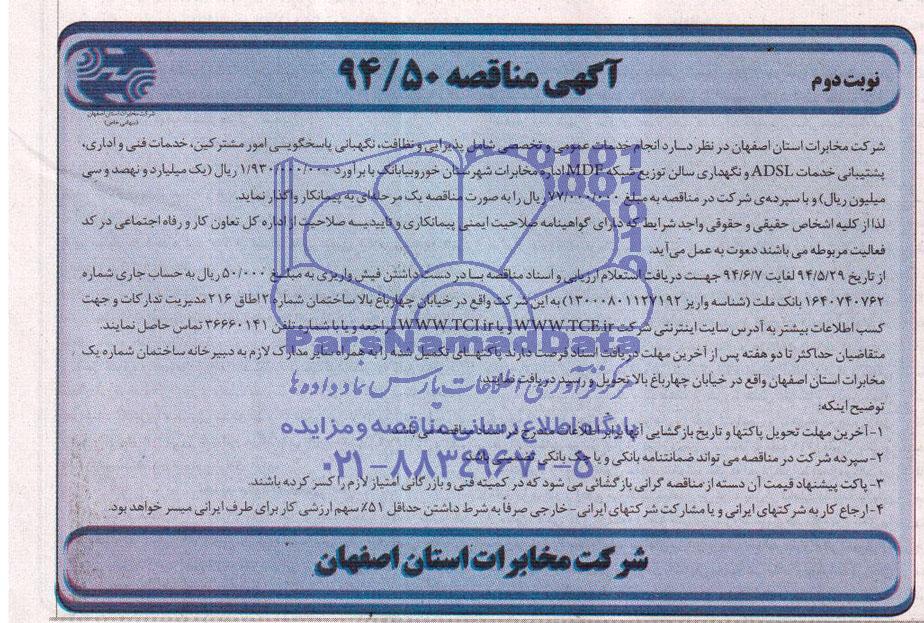 نوبت دوم
آگهی مناقصه ۹۴/۵۰
شرکت مخابرات استان اصفهان
(سهامی خاص)
شرکت مخابرات استان اصفهان در نظر دسارد انجام خدمات عمومی و تخصصی شامل پذیرایی و نظافت، نگهبانی پاسخگویی امور مشترکین، خدمات فنی و اداری،
پشتیبانی خدمات ADSL و نگهداری سالن توزیع شبکه MDF اداره مخابرات شهرستان خوروبیابانک با برآورد ۱/۹۳۰/۰۰۰/۰۰۰ ریال (یک میلیارد و نهصد و سی
میلیون ریال) و با سپرده‌ی شرکت در مناقصه به مبلغ ۷۷/۰۰۰/۰۰۰ ریال را به صورت مناقصه یک مرحله‌ای به پیمانکار واگذار نماید.
لذا از کلیه اشخاص حقیقی و حقوقی واجد شرایط که دارای گواهینامه صلاحیت ایمنی پیمانکاری و تاییدیه صلاحیت از اداره کل تعاون کار و رفاه اجتماعی در کد
فعالیت مربوطه می باشند دعوت به عمل می‌آید.
از تاریخ ۹۴/۵/۲۹ لغایت ۹۴/۶/۷ جهت دریافت استعلام ارزیابی و اسناد مناقصه با در دست داشتن فیش واریزی به مبلغ ۵۰/۰۰۰ ریال به حساب جاری شماره
۱۶۴۰۷۴۰۷۶۲ بانک ملت (شناسه واریز ۱۳۰۰۰۸۰۱۱۲۷۱۹۲) به این شرکت واقع در خیابان چهارباغ بالا ساختمان شماره ۲ اطاق ۲۱۶ مدیریت تدارکات و جهت
کسب اطلاعات بیشتر به آدرس سایت اینترنتی شرکت WWW.TCE.ir و یا WWW.TCI.ir مراجعه و یا با شماره تلفن ۳۶۶۶۰۱۴۱ تماس حاصل نمایند.
متقاضیان حداکثر تا دو هفته پس از آخرین مهلت دریافت اسناد فرصت دارند پاکتهای تکمیل شده را به همراه سایر مدارک لازم به دبیرخانه ساختمان شماره یک
مخابرات استان اصفهان واقع در خیابان چهارباغ بالا تحویل و رسید دریافت نمایند.
توضیح اینکه:
۱- آخرین مهلت تحویل پاکتها و تاریخ بازگشایی آنها برابر اطلاعات مندرج در اسناد مناقصه می باشد.
۲- سپرده شرکت در مناقصه می تواند ضمانتنامه بانکی و یا چک بانکی تضمینی باشد.
۳- پاکت پیشنهاد قیمت آن دسته از مناقصه گرانی بازگشائی می شود که در کمیته فنی و بازرگانی امتیاز لازم را کسر کرده باشند.
۴- ارجاع کار به شرکتهای ایرانی و یا مشارکت شرکتهای ایرانی- خارجی صرفاً به شرط داشتن حداقل ۵۱٪ سهم ارزشی کار برای طرف ایرانی میسر خواهد بود.
شرکت مخابرات استان اصفهان
ParsNamadData
مرکز فرآوری اطلاعات پارس نماد داده ها
پایگاه اطلاع رسانی مناقصه و مزایده
۰۲۱-۸۸۳۴۹۶۷۰-۵